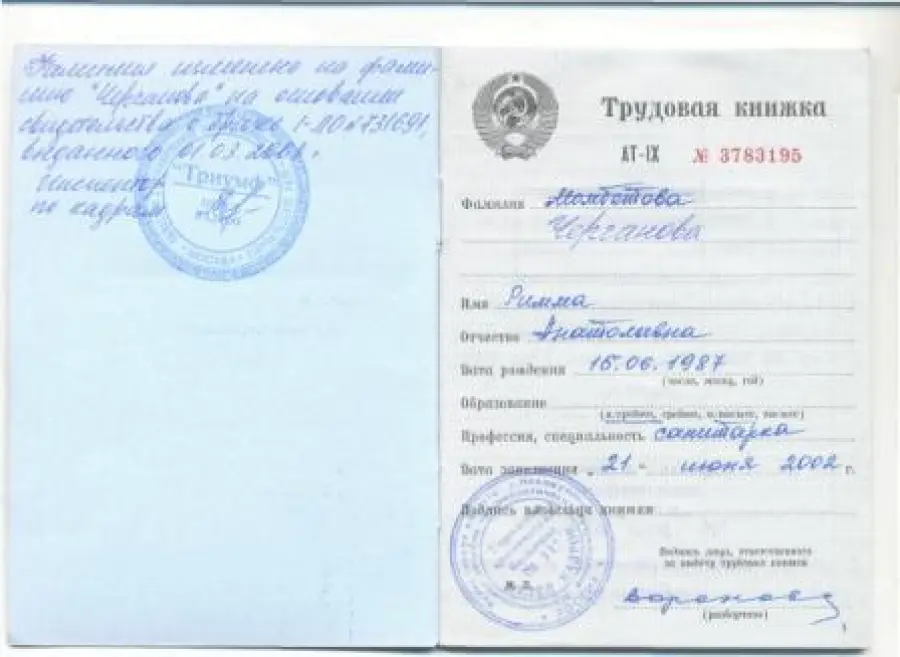 Фамилия изменена на фами-
лию "Черганова" на основании
свидетельства о браке I-ДО №731691,
выданного 01.03.
Инспектор
по кадрам
"Триумф"
МОСКВА
Трудовая книжка
АТ-IX № 3783195
Фамилия Мамбетова
Черганова
Имя Римма
Отчество Анатоливна
Дата рождения 15.06.1987
(число, месяц, год)
Образование
Профессия, специальность санитарка
Дата заполнения „21- июня 2002 г.
Подпись владельца книжки
Подпись лица, ответственного
за выдачу трудовых книжек
М. П.
(разборчиво)